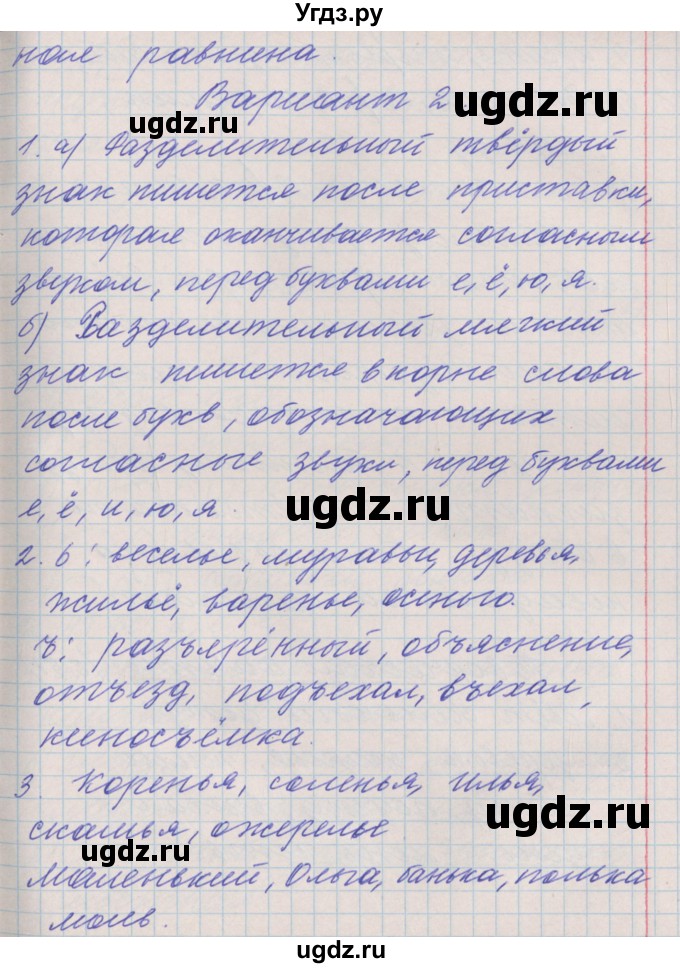 Угдз.ру
ная равнина.
Вариант 2
ugdz.ru
ugdz.ru
1. а) Разделительный твёрдый
знак пишется после приставки,
которая оканчивается согласным
звуком, перед буквами е, ё, ю, я.
б) Разделительный мягкий
знак пишется в корне слова
после букв, обозначающих
согласные звуки, перед буквами
е, ё, и, ю, я.
ugdz.ru
2. ь: веселье, муравьи, деревья,
жильё, варенье, осенью.
ъ: разъярённый, объяснение,
отъезд, подъехал, въехал,
киносъёмка.
3. Коренья, соленья, Илья,
ugdz.ru
скамья, ожерелье
ugdz.ru
Маленький, Ольга, банька, полька
моль.
ugdz.ru